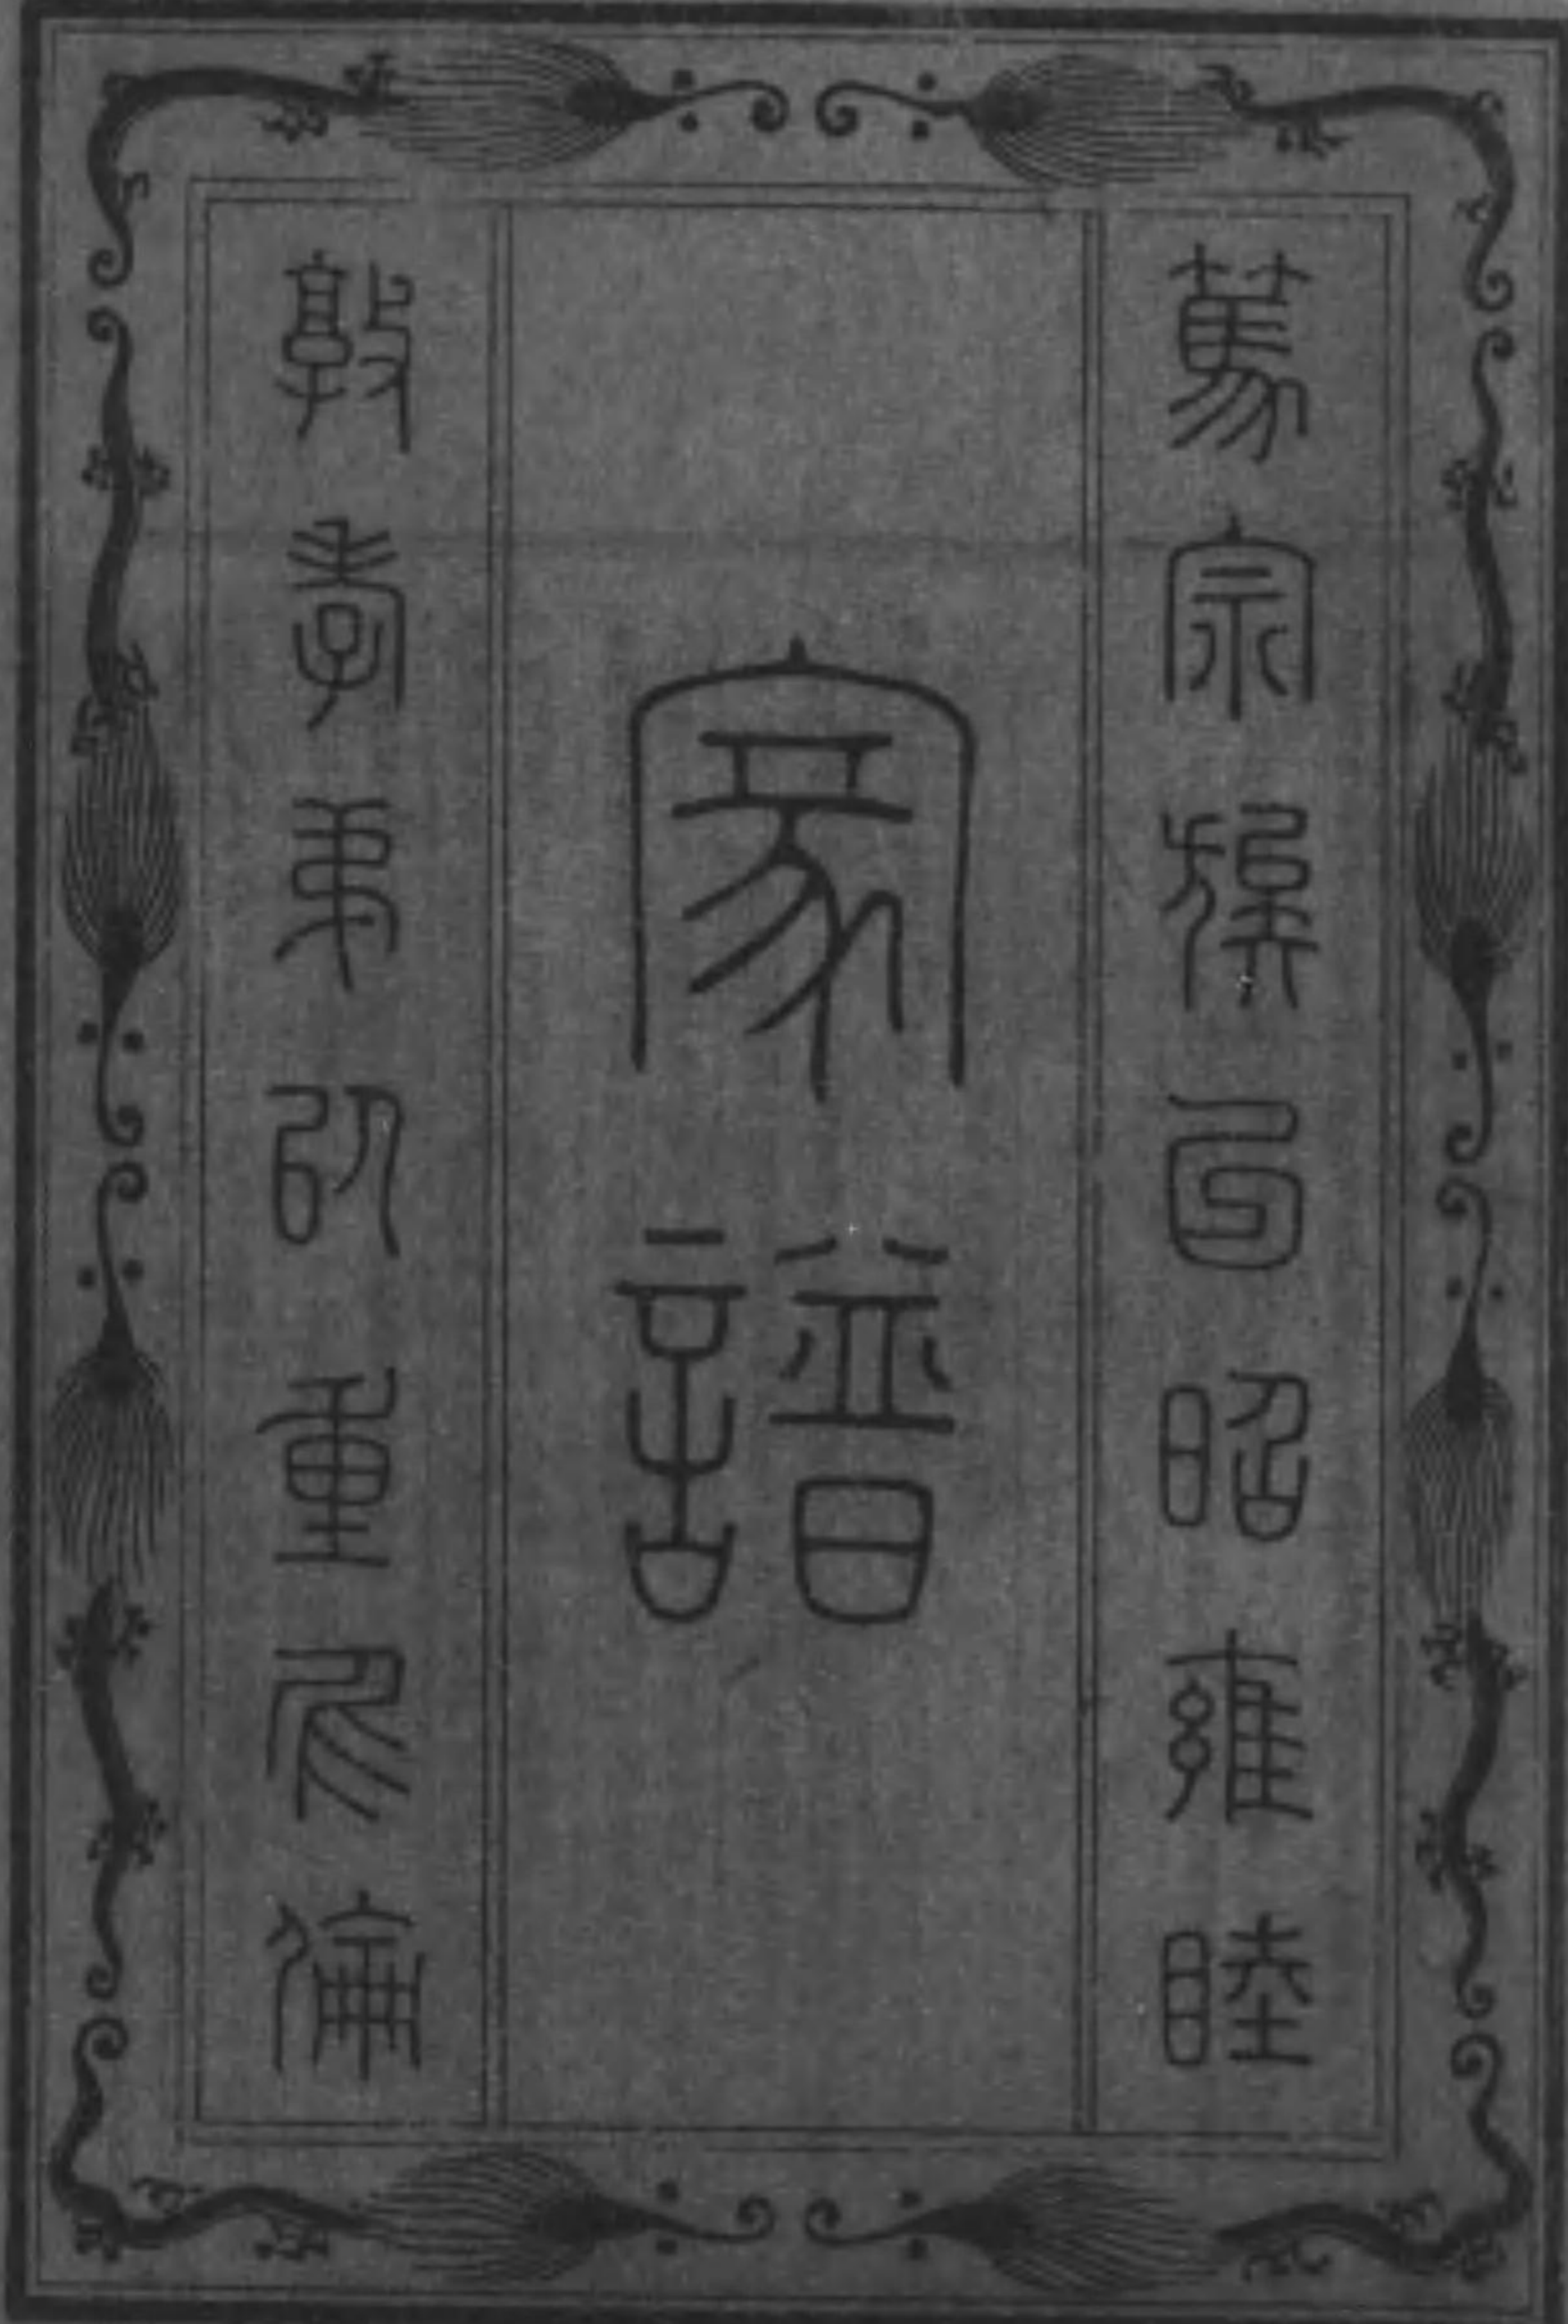 篤宗族以昭雍睦
家譜
敦孝弟以重人倫